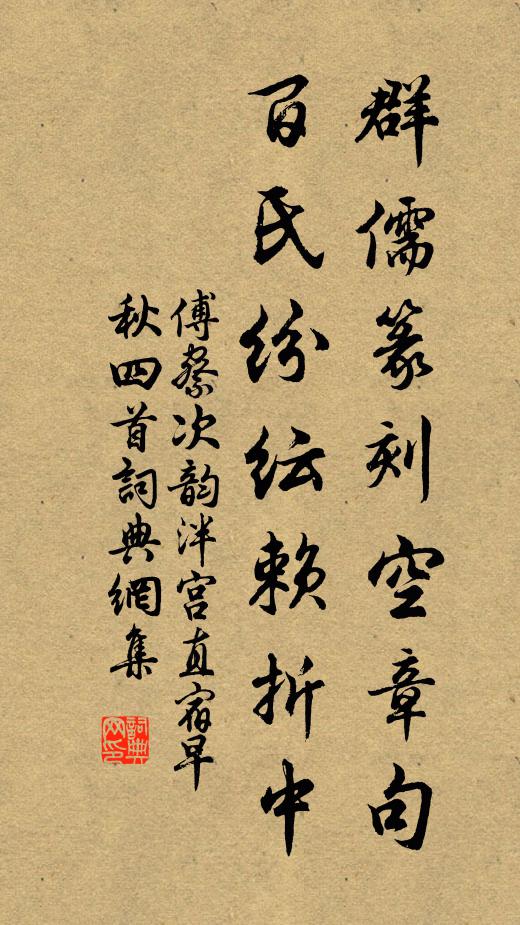 群儒篆刻空章句
百氏纷纭赖折中
傅察次韵泮宫直宿早
秋四首詞典網集
詞典網印